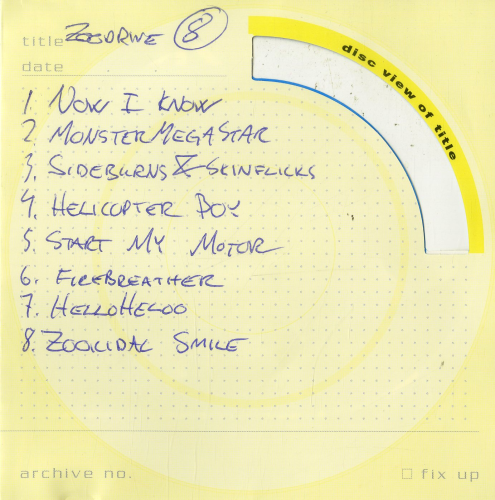 title ZOODRIVE 8
disc view of title
date
1. NOW I KNOW
2 MONSTERMEGASTAR
3. SIDEBURNS & SKINFLICKS
4. HELICOPTER BOY
5. START MY MOTOR
6. FIREBREATHER
7. HELLOHELOO
8. ZOOICIDAL SMILE
archive no.
fix up